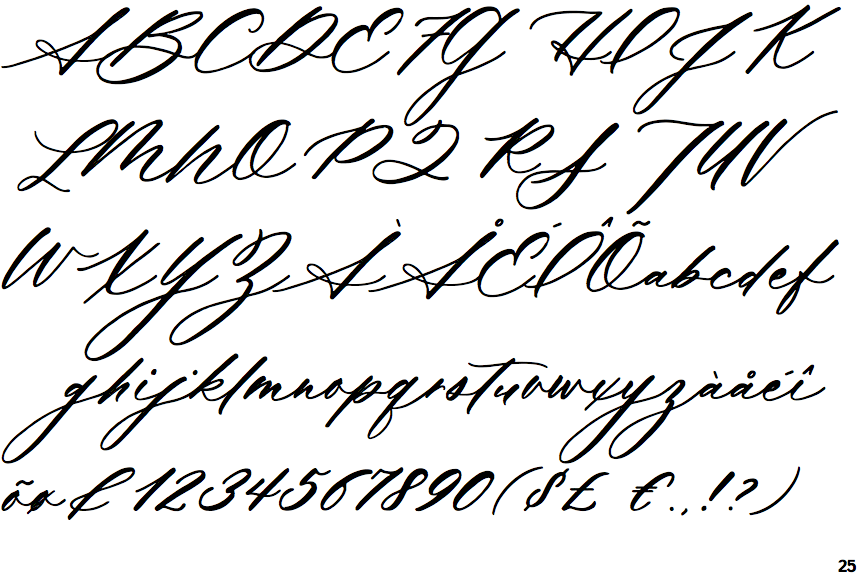 ABCDEFGHIJK
LMNOPQRSTUV
WXYZÀÅÉÎÔÕabcdef
ghijklmnopqrstuvwxyzàåéî
õø&1234567890($£€.,!?)
25